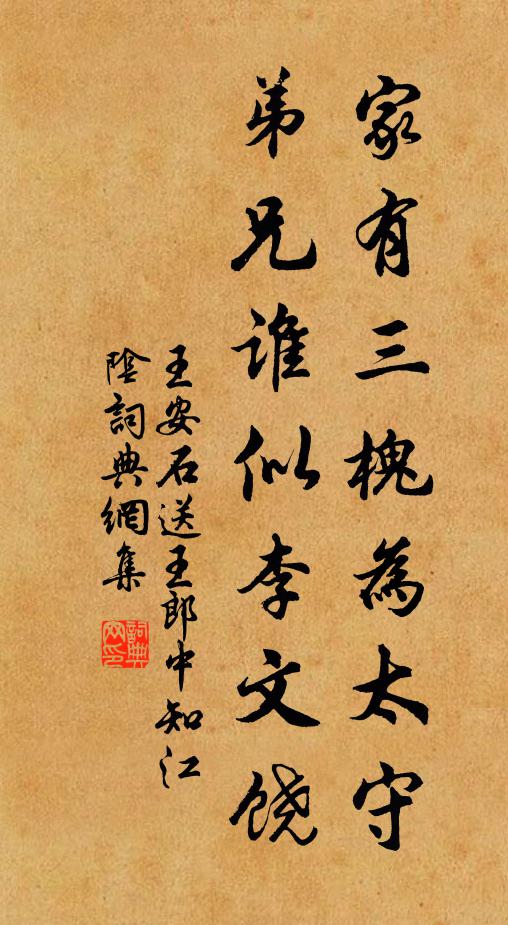 家有三槐為太守
弟兄誰似李文饒
王安石送王郎中知江
陰詞典網集
詞典網印